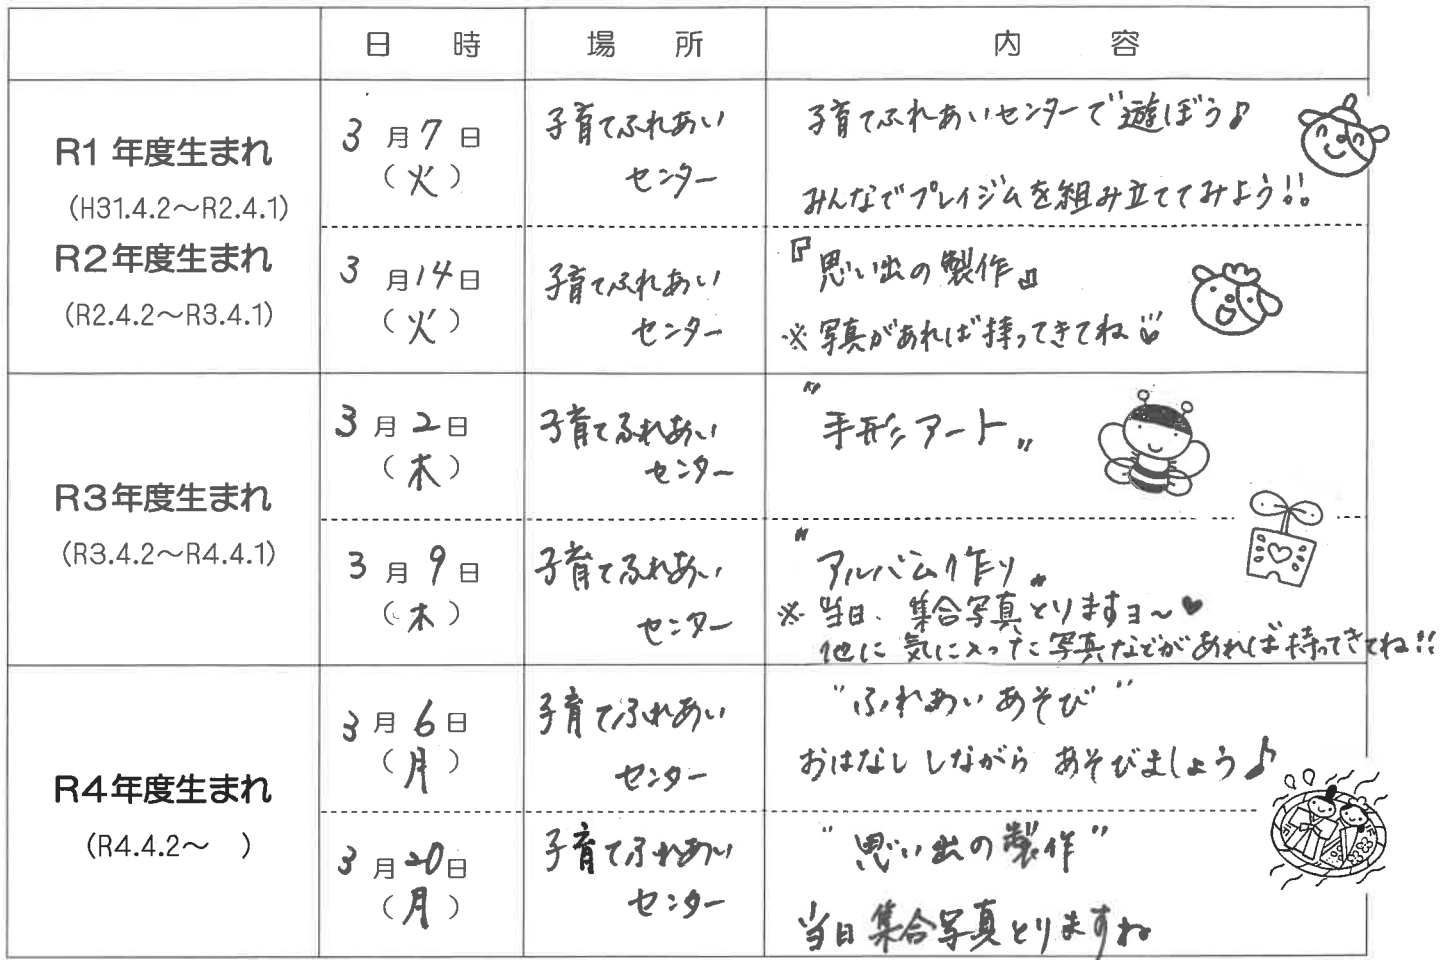 日 時 場 所 内 容
R1年度生まれ
(H31.4.2〜R2.4.1)
R2年度生まれ
(R2.4.2〜R3.4.1)
3月7日
(火)
子育てふれあい
センター
子育てふれあいセンターで遊ぼう♪
みんなでプレイジムを組み立ててみよう!!
3月14日
(火)
子育てふれあい
センター
『思い出の製作』
※写真があれば持ってきてね
R3年度生まれ
(R3.4.2〜R4.4.1)
3月2日
(木)
子育てふれあい
センター
"手形アート"
3月9日
(木)
子育てふれあい
センター
"アルバム作り"
※当日、集合写真とりますヨ〜♥
他に気に入った写真などがあれば持ってきてね!!
R4年度生まれ
(R4.4.2〜 )
3月6日
(月)
子育てふれあい
センター
"ふれあいあそび"
おはなししながら あそびましょう♪
3月20日
(月)
子育てふれあい
センター
"思い出の製作"
当日集合写真とりますね